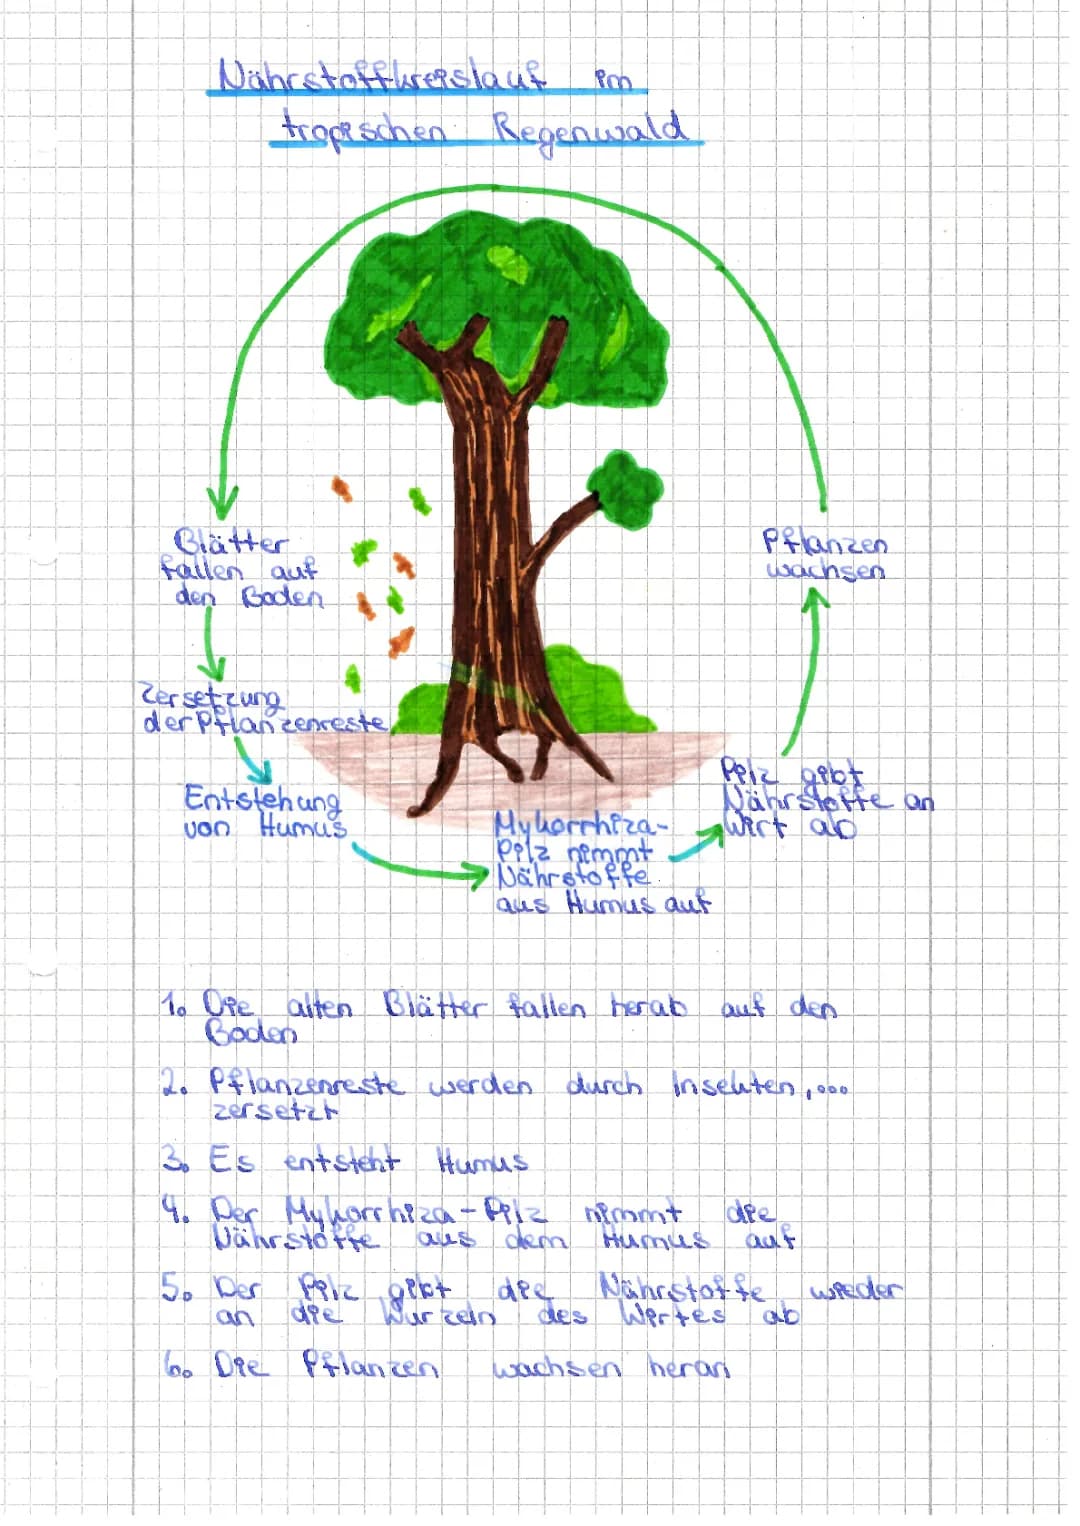 Nährstoffkreislauf im
tropischen Regenwald
Blätter
fallen auf
den Boden
Zersetzung
der Pflanzenreste
Entstehung
von Humus
Mykorrhiza-
Pilz nimmt
Nährstoffe
aus Humus auf
Pilz gibt
Nährstoffe an
Wirt ab
Pflanzen
wachsen
1. Die alten Blätter fallen herab auf den
Boden
2. Pflanzenreste werden durch Insekten,...
zersetzt
3. Es entsteht Humus
4. Der Mykorrhiza-Pilz nimmt die
Nährstoffe aus dem Humus auf
5. Der Pilz gibt die Nährstoffe wieder
an die Wurzeln des Wirtes ab
6. Die Pflanzen wachsen heran